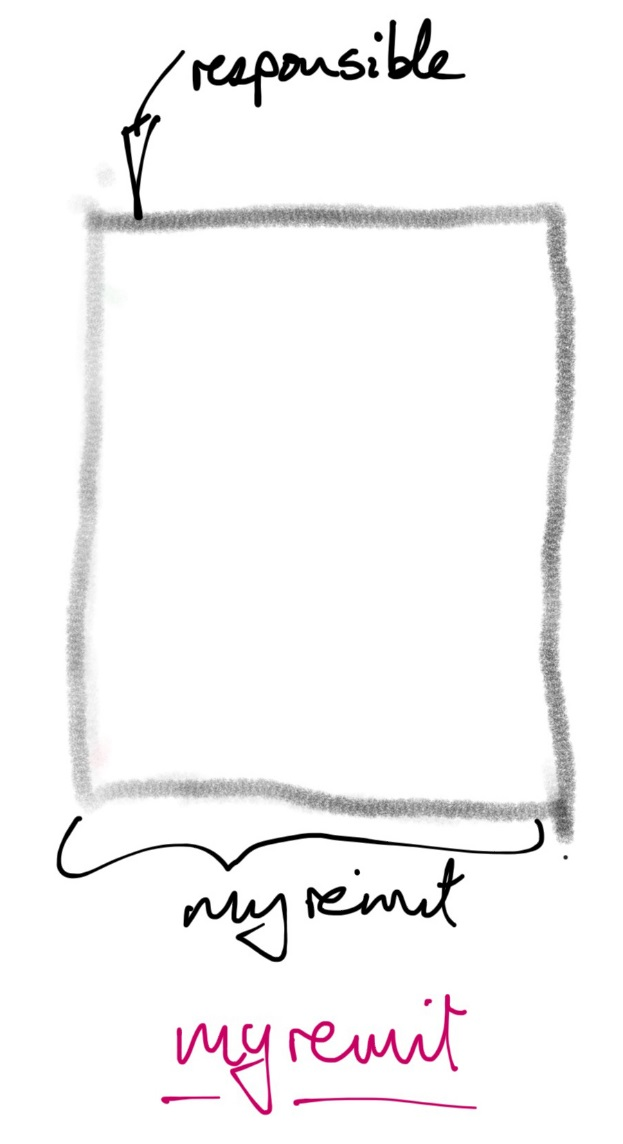 responsible
my remit
my remit